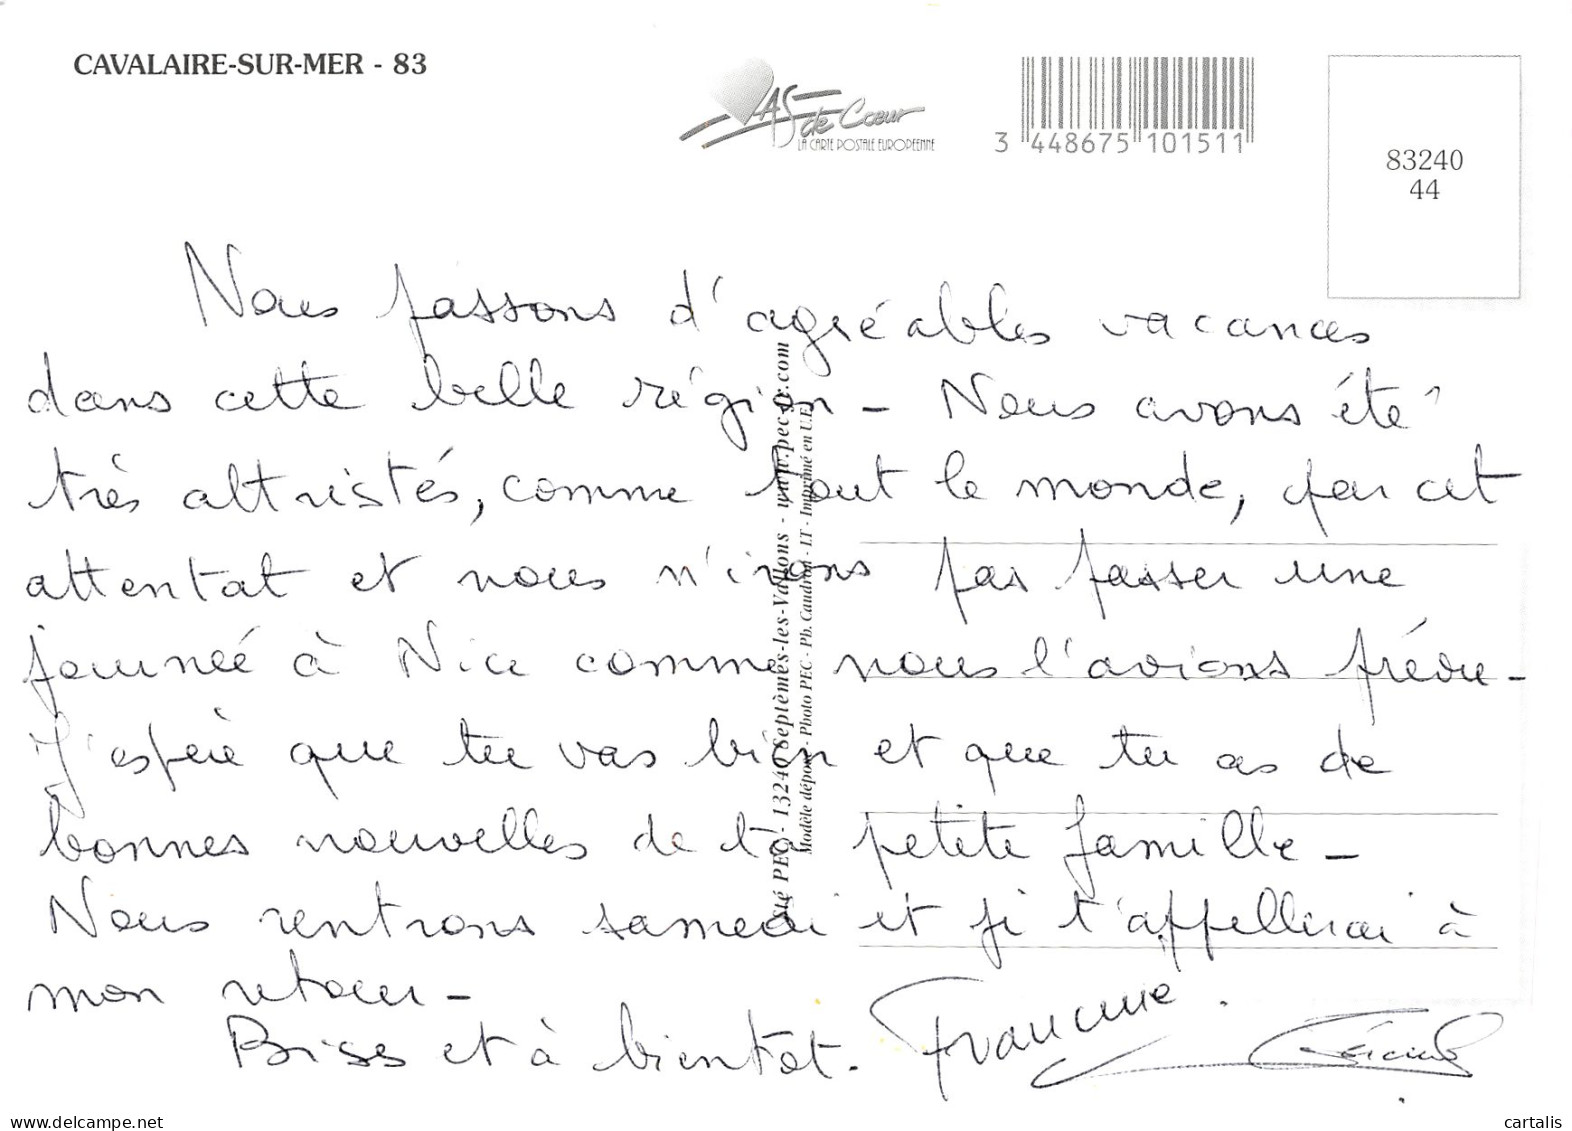 CAVALAIRE-SUR-MER - 83
AS de Cœur
LA CARTE POSTALE EUROPEENNE
3 448675 101511
83240
44
Nous passons d'agréables vacances
dans cette belle région - Nous avons été
très attristés, comme tout le monde, par cet
attentat et nous n'irons pas passer une
journée à Nice comme nous l'avions prévu -
J'espère que tu vas bien et que tu as de
bonnes nouvelles de ta petite famille -
Nous rentrons samedi et je t'appellerai à
mon retour -
Bises et à bientôt. Francine
Sté PEC - 13240 Septèmes-les-Vallons - www.pecsgr.com
Modèle déposé - Photo PEC - Ph. Caudron - LT - Imprimé en U.E.
cartalis
www.delcampe.net